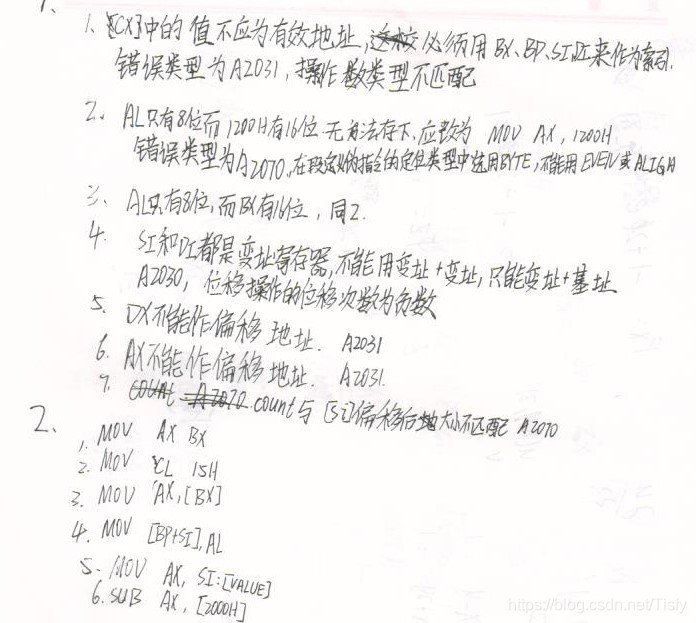 1.
1. [CX]中的值不应为有效地址,必须用BX、BP、SI、DI来作为索引.
错误类型为A2031,操作数类型不匹配
2. AL只有8位而1200H有16位.无法存下.应改为 MOV AX, 1200H.
错误类型为A2070.在段定义伪指令的定位类型中选用BYTE,不能用EVEN或ALIGN
3. AL只有8位,而BX有16位,同2.
4. SI和DI都是变址寄存器,不能用变址+变址,只能变址+基址
A2030,位移操作的位移次数为负数
5. DX不能作偏移地址. A2031
6. AX不能作偏移地址. A2031.
7. count与[SI]偏移后大小不匹配 A2070
2.
1. MOV AX BX
2. MOV CL 15H
3. MOV AX,[BX]
4. MOV [BP+SI],AL
5. MOV AX, SI:[VALUE]
6. SUB AX, [2000H]
https://blog.csdn.net/Tisfy